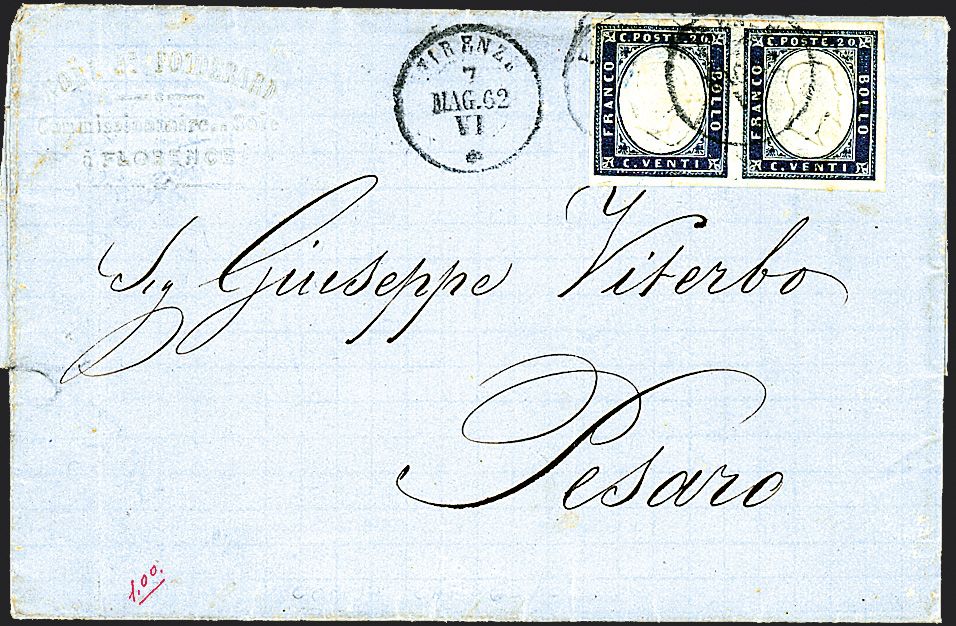 Commissionnaire
à FLORENCE
FIRENZE
7
MAG. 62
VI
C. POSTE. 20
FRANCO
BOLLO
C. VENTI
C. POSTE. 20
FRANCO
BOLLO
C. VENTI
Sig Giuseppe Viterbo
Pesaro
1.00.